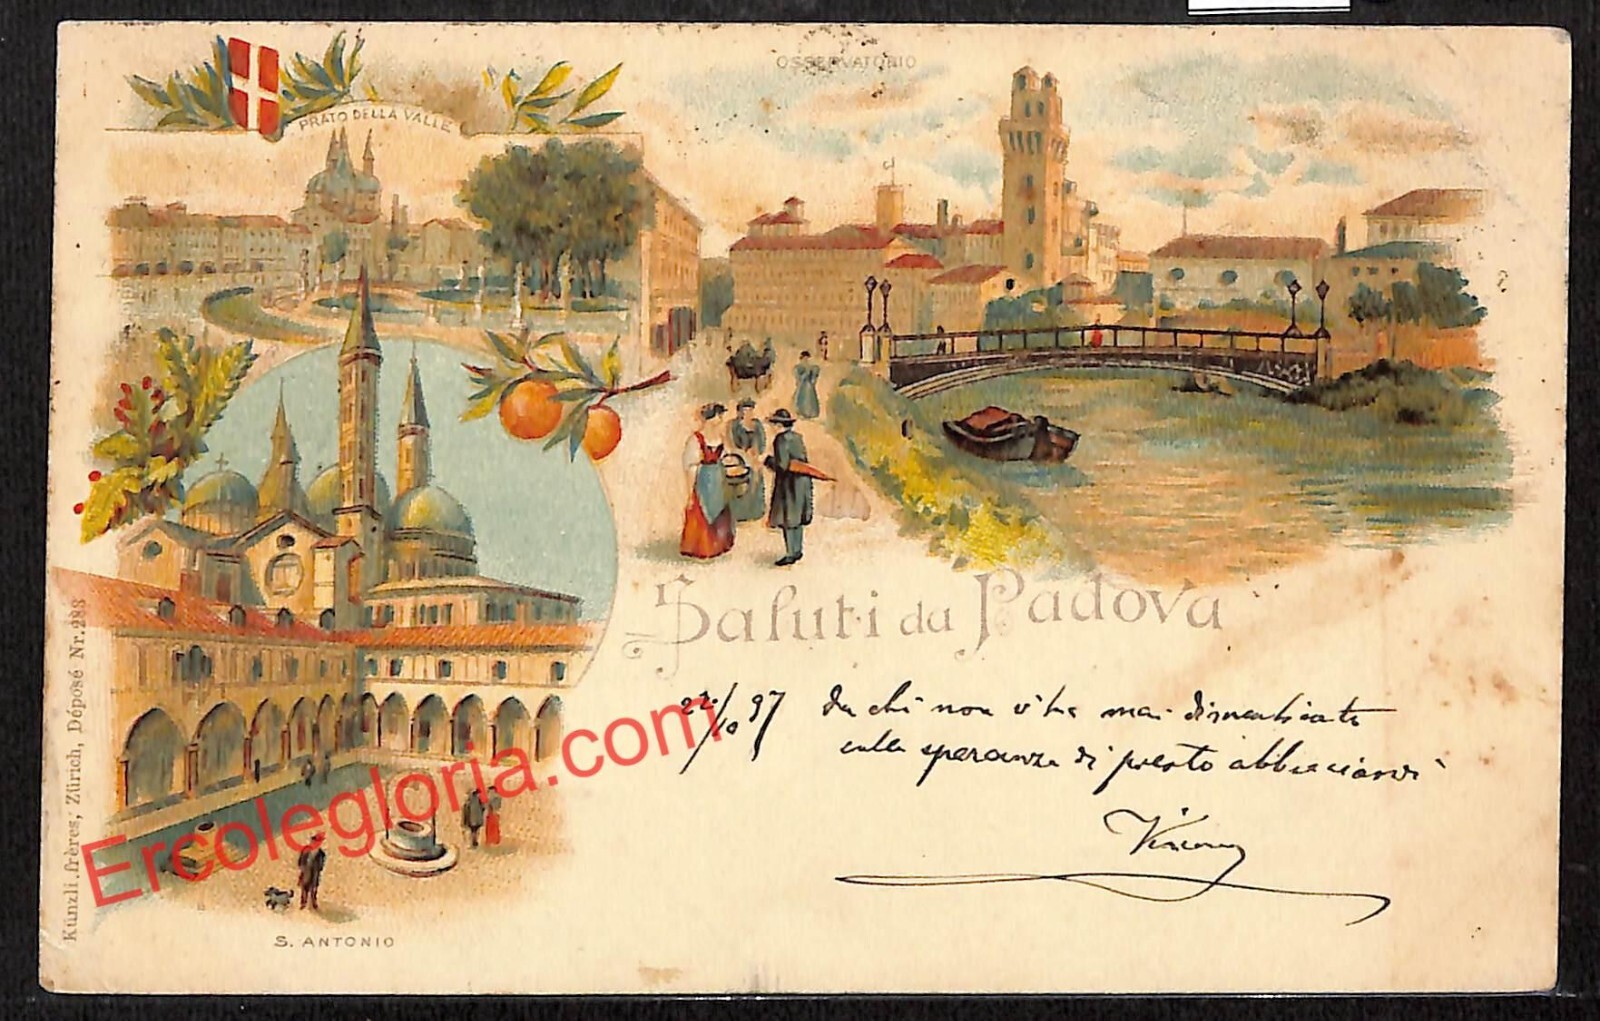 OSSERVATORIO
PRATO DELLA VALLE
Saluti da Padova
22/10 97 da chi non vi ha mai dimenticate
colla speranza di presto abbracciarvi
S. ANTONIO
Künzli.frères, Zürich, Déposé Nr.283
Ercolegloria.com